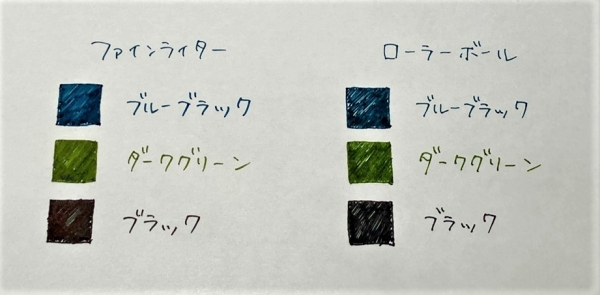 ファインライター
ブルーブラック
ダークグリーン
ブラック
ローラーボール
ブルーブラック
ダークグリーン
ブラック